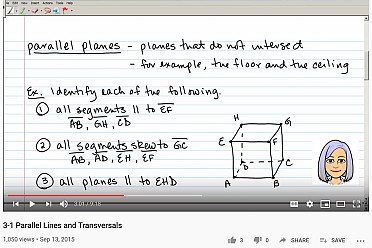 parallel planes - planes that do not intersect
- for example, the floor and the ceiling
Ex. Identify each of the following.
① all segments || to EF
AB, GH, CD
② all segments skew to GC
AB, AD, EH, EF
③ all planes || to EHD
H
G
E
F
D
C
A
B
3:01 / 9:18
3-1 Parallel Lines and Transversals
1,050 views • Sep 13, 2015
3
0
SHARE
SAVE